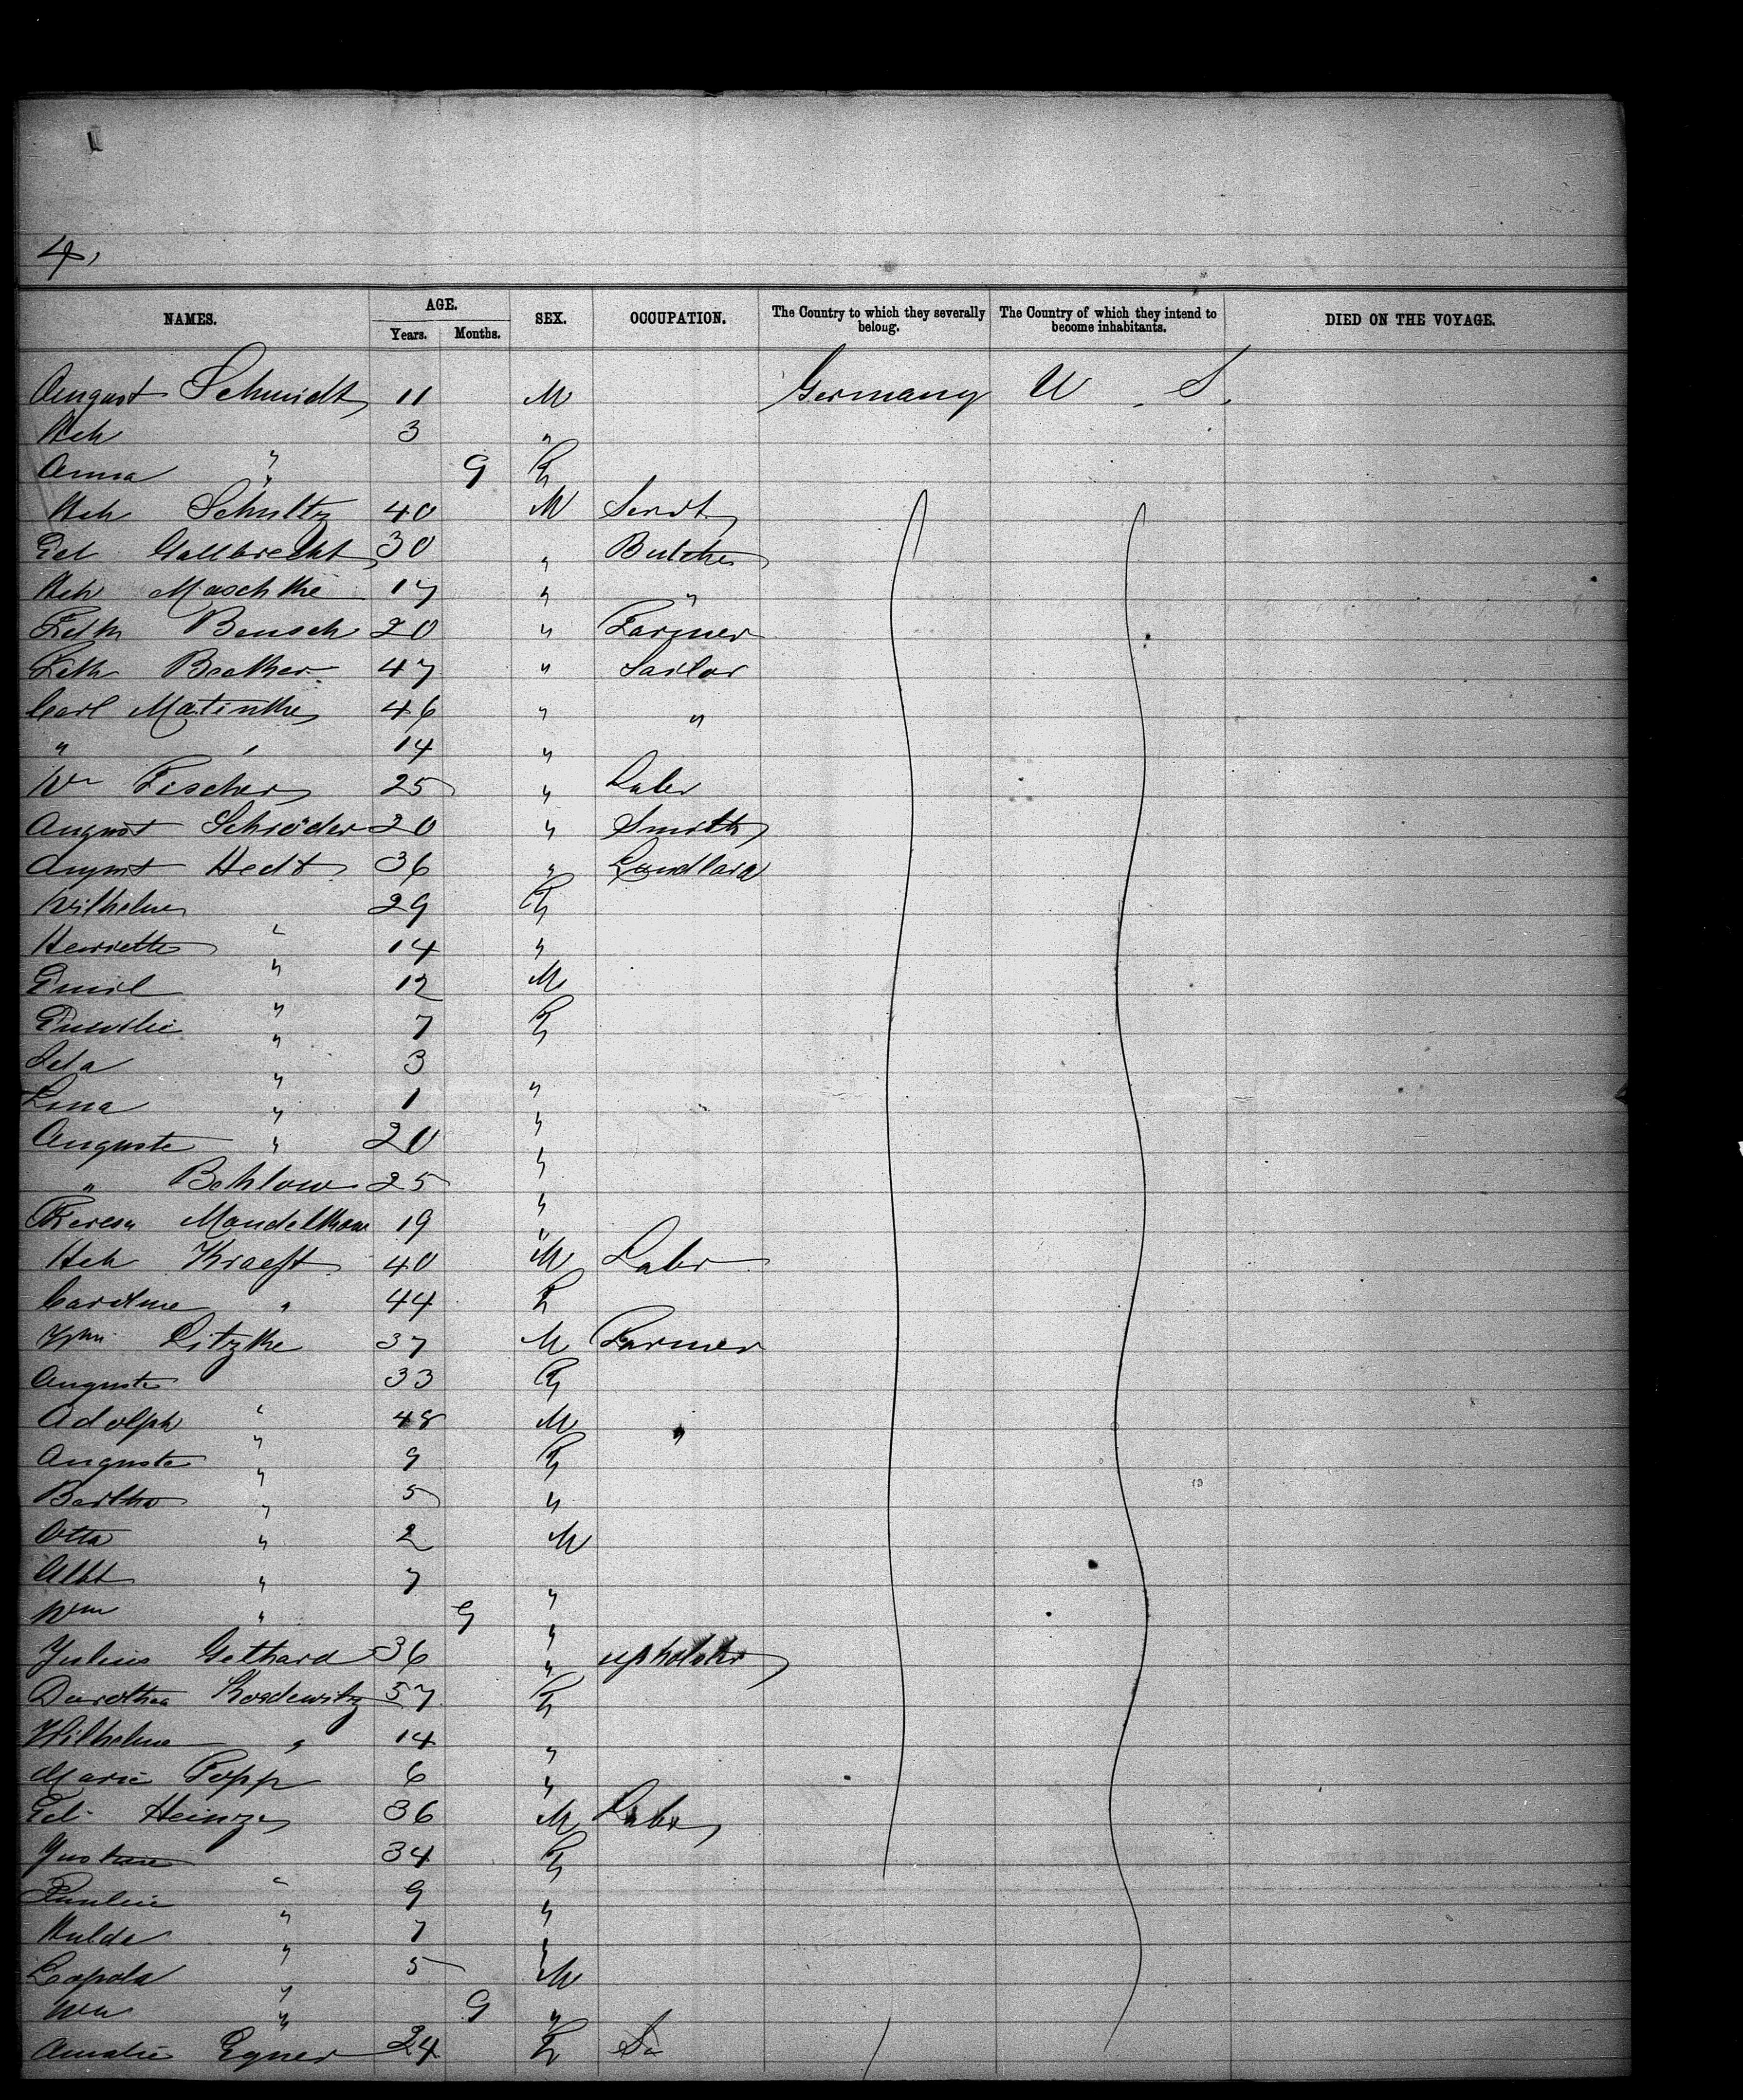 4,
NAMES. AGE. SEX. OCCUPATION. The Country to which they severally belong. The Country of which they intend to become inhabitants. DIED ON THE VOYAGE.
Years. Months.
August Schmidt 11 M Germany U. S.
Hch 3 "
Anna " 9 F
Hch Schultz 40 M Servt
Ed Gallbrecht 30 " Butcher
Hch Maschke 17 " "
Fdth Bensch 20 " Farmer
Becker 47 " Sailor
Carl Matinke 46 " "
" " 14 "
Wm Fischer 25 " Labr
August Schröder 20 " Smith
August Hedt 36 " Landlord
Wilhelme " 29 F
Henriette " 14 "
Emil " 12 M
Emilie " 7 F
Ida " 3 "
Lina " 1 "
Auguste " 20 "
" Behlow 25 "
Theresa Mandelkow 19 "
Hch Kraeft 40 M Labr
Caroline " 44 F
Litzke 37 M Farmer
Auguste " 33 F
Adolph " 48 M "
Auguste " 9 F
Bertha " 5 "
Otto " 2 M
Albt " 7 "
Wm " 9 "
Julius Gethard 36 " upholster
Dorothea Kosdewitz 57 F
Wilhelme " 14 "
Marie Popp 6 "
Ed. Heinze 36 M Labr
Justine " 34 F
Paulie " 9 "
Hulda " 7 "
Leopold " 5 M
Wm " 9 "
Amalie Egner 24 F